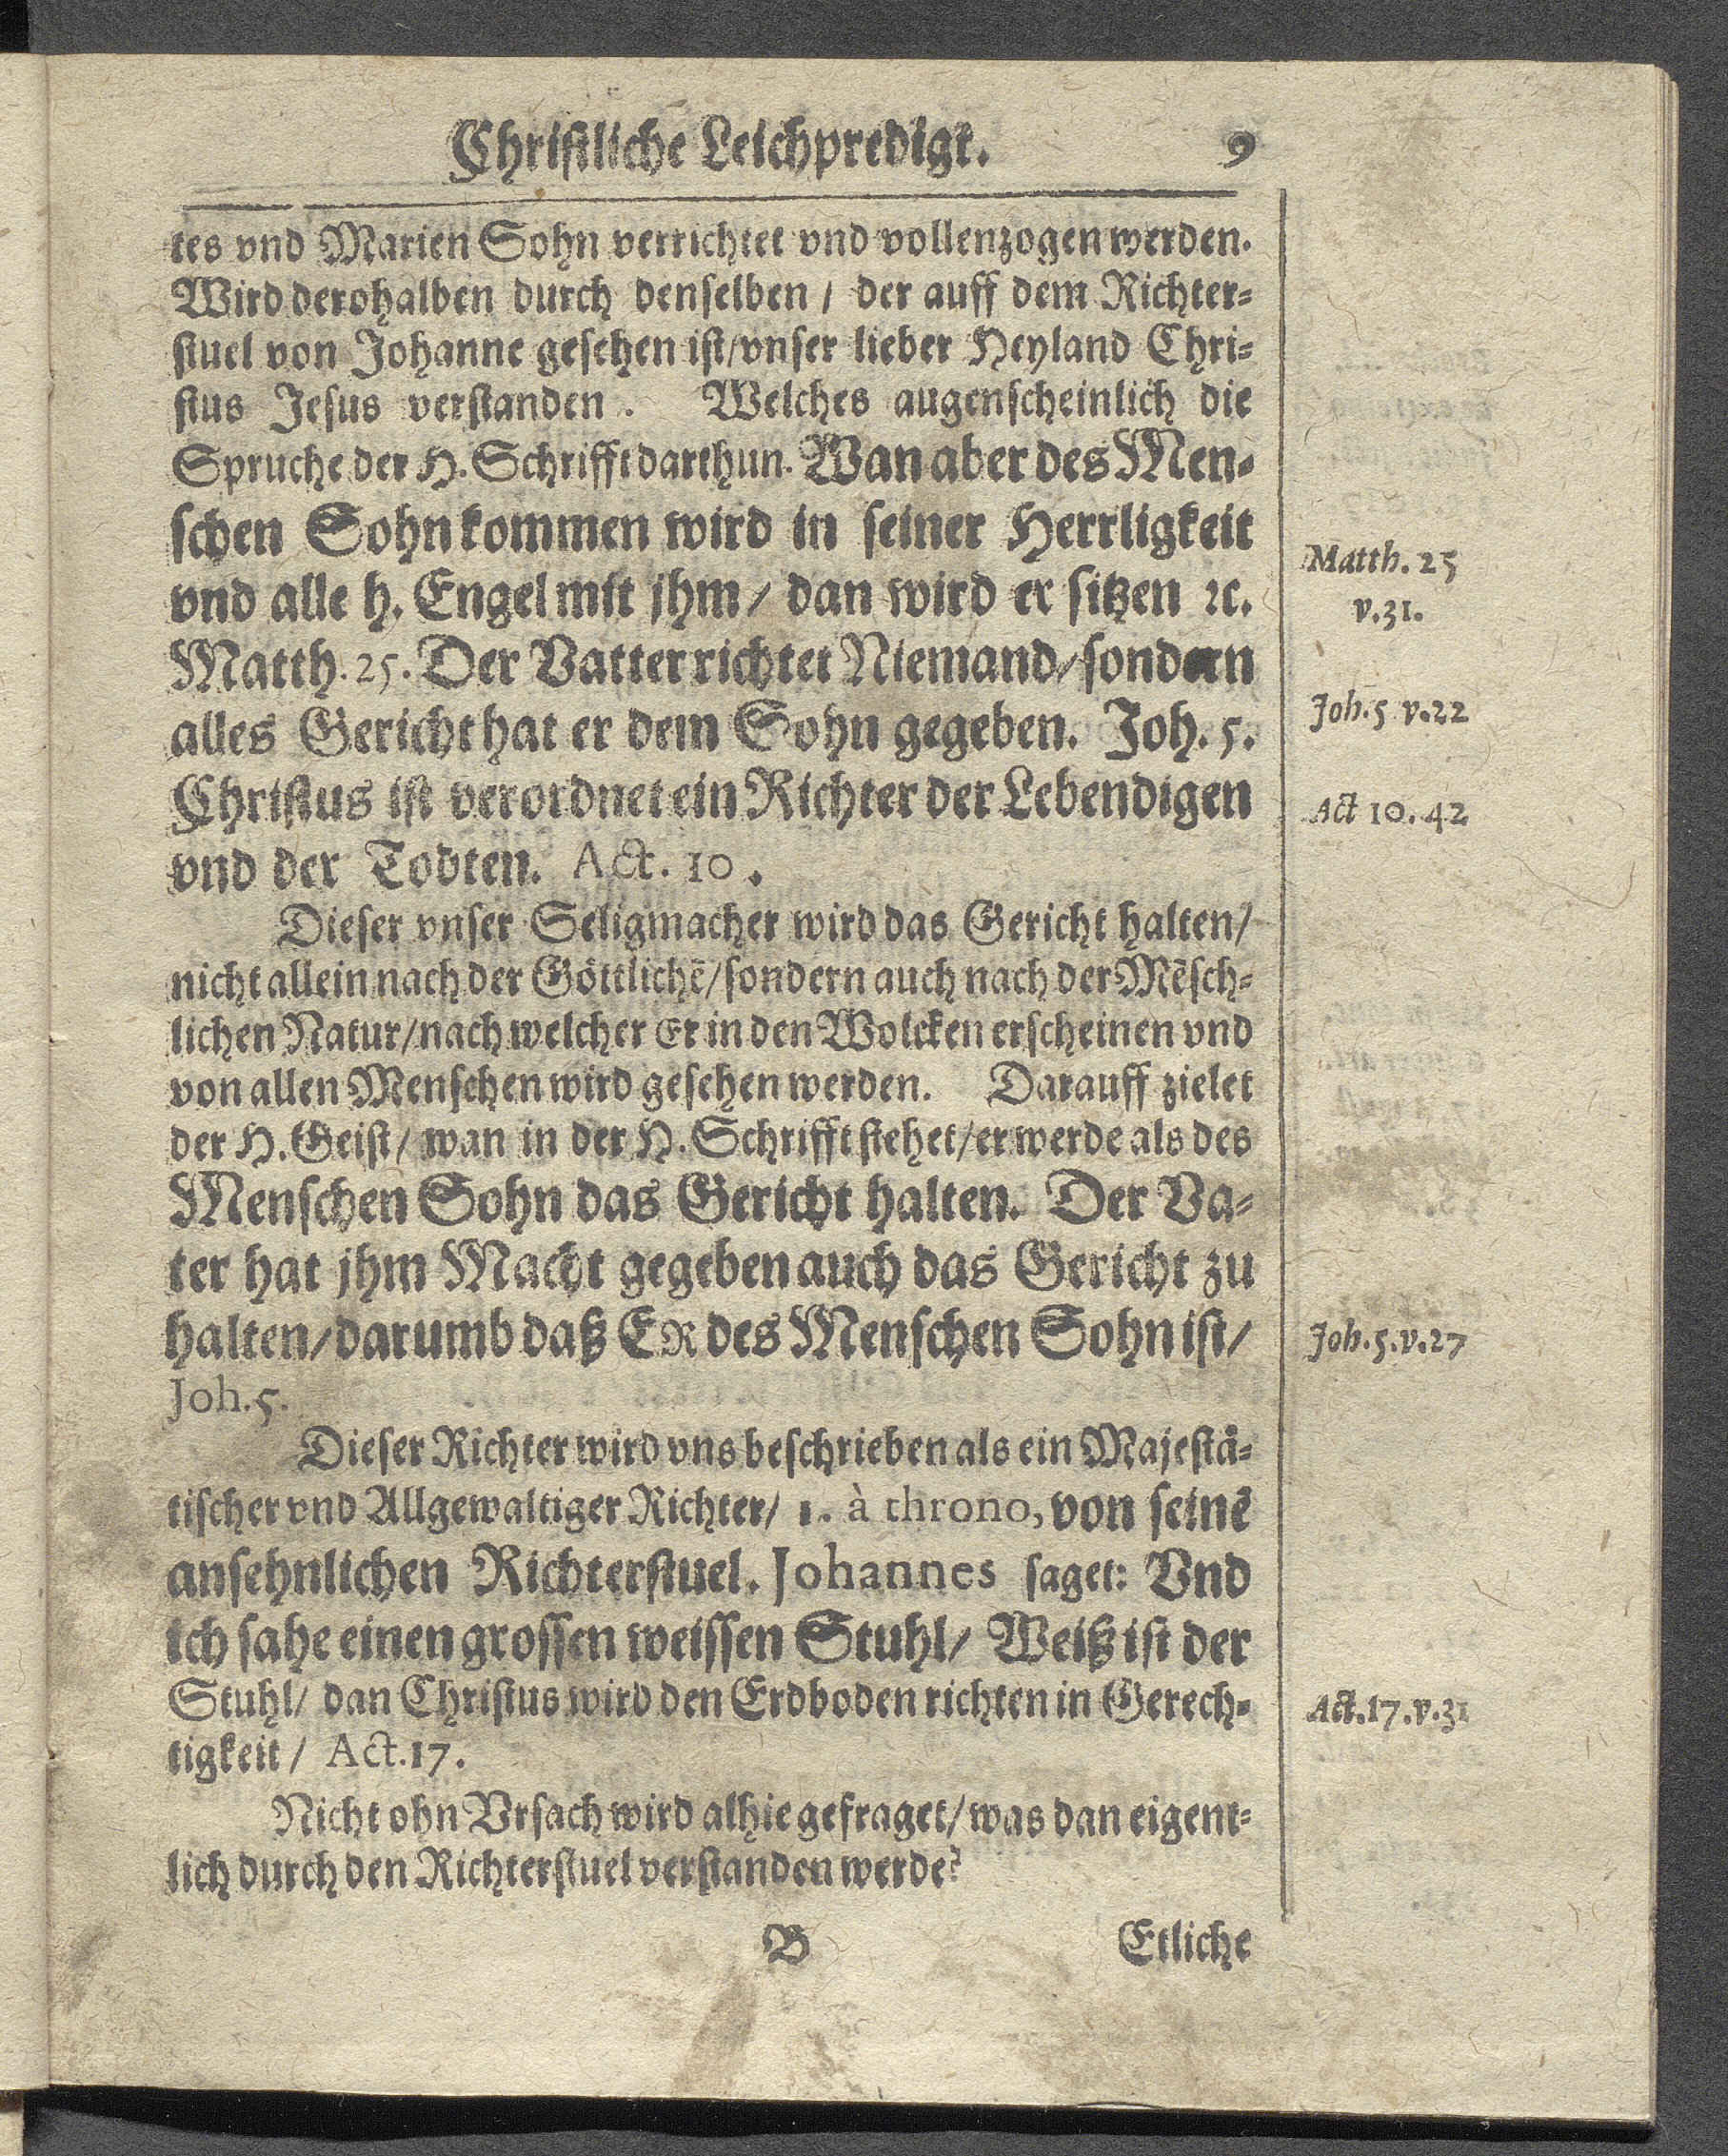 Christliche Leichpredigt. 9
tes vnd Marien Sohn verrichtet vnd vollenzogen werden.
Wird derohalben durch denselben / der auff dem Richter-
stuel von Johanne gesehen ist/vnser lieber Heyland Chri-
stus Jesus verstanden . Welches augenscheinlich die
Spruche der H. Schrifft darthun. Wan aber des Men-
schen Sohn kommen wird in seiner Herrligkeit
vnd alle h. Engel mit jhm / dan wird er sitzen ꝛc.
Matth. 25
v.31.
Matth. 25. Der Vatter richtet Niemand/sondern
alles Gericht hat er dem Sohn gegeben. Joh. 5.
Joh. 5 v.22
Christus ist verordnet ein Richter der Lebendigen
Act 10. 42
vnd der Todten. Act. 10 .
Dieser vnser Seligmacher wird das Gericht halten/
nicht allein nach der Göttlichē/sondern auch nach der Mēsch-
lichen Natur/nach welcher Er in den Wolcken erscheinen vnd
von allen Menschen wird gesehen werden. Darauff zielet
der H. Geist/ wan in der H. Schrifft stehet/er werde als des
Menschen Sohn das Gericht halten. Der Va-
ter hat jhm Macht gegeben auch das Gericht zu
halten/darumb daß ER des Menschen Sohn ist/
Joh. 5. v.27
Joh. 5.
Dieser Richter wird vns beschrieben als ein Majestä-
tischer vnd Allgewaltiger Richter/ 1. à throno, von seinē
ansehnlichen Richterstuel. Johannes saget: Vnd
ich sahe einen grossen weissen Stuhl/ Weiß ist der
Stuhl/ dan Christus wird den Erdboden richten in Gerech-
Act. 17. v.31
tigkeit / Act. 17.
Nicht ohn Vrsach wird alhie gefraget/was dan eigent-
lich durch den Richterstuel verstanden werde?
B Etliche